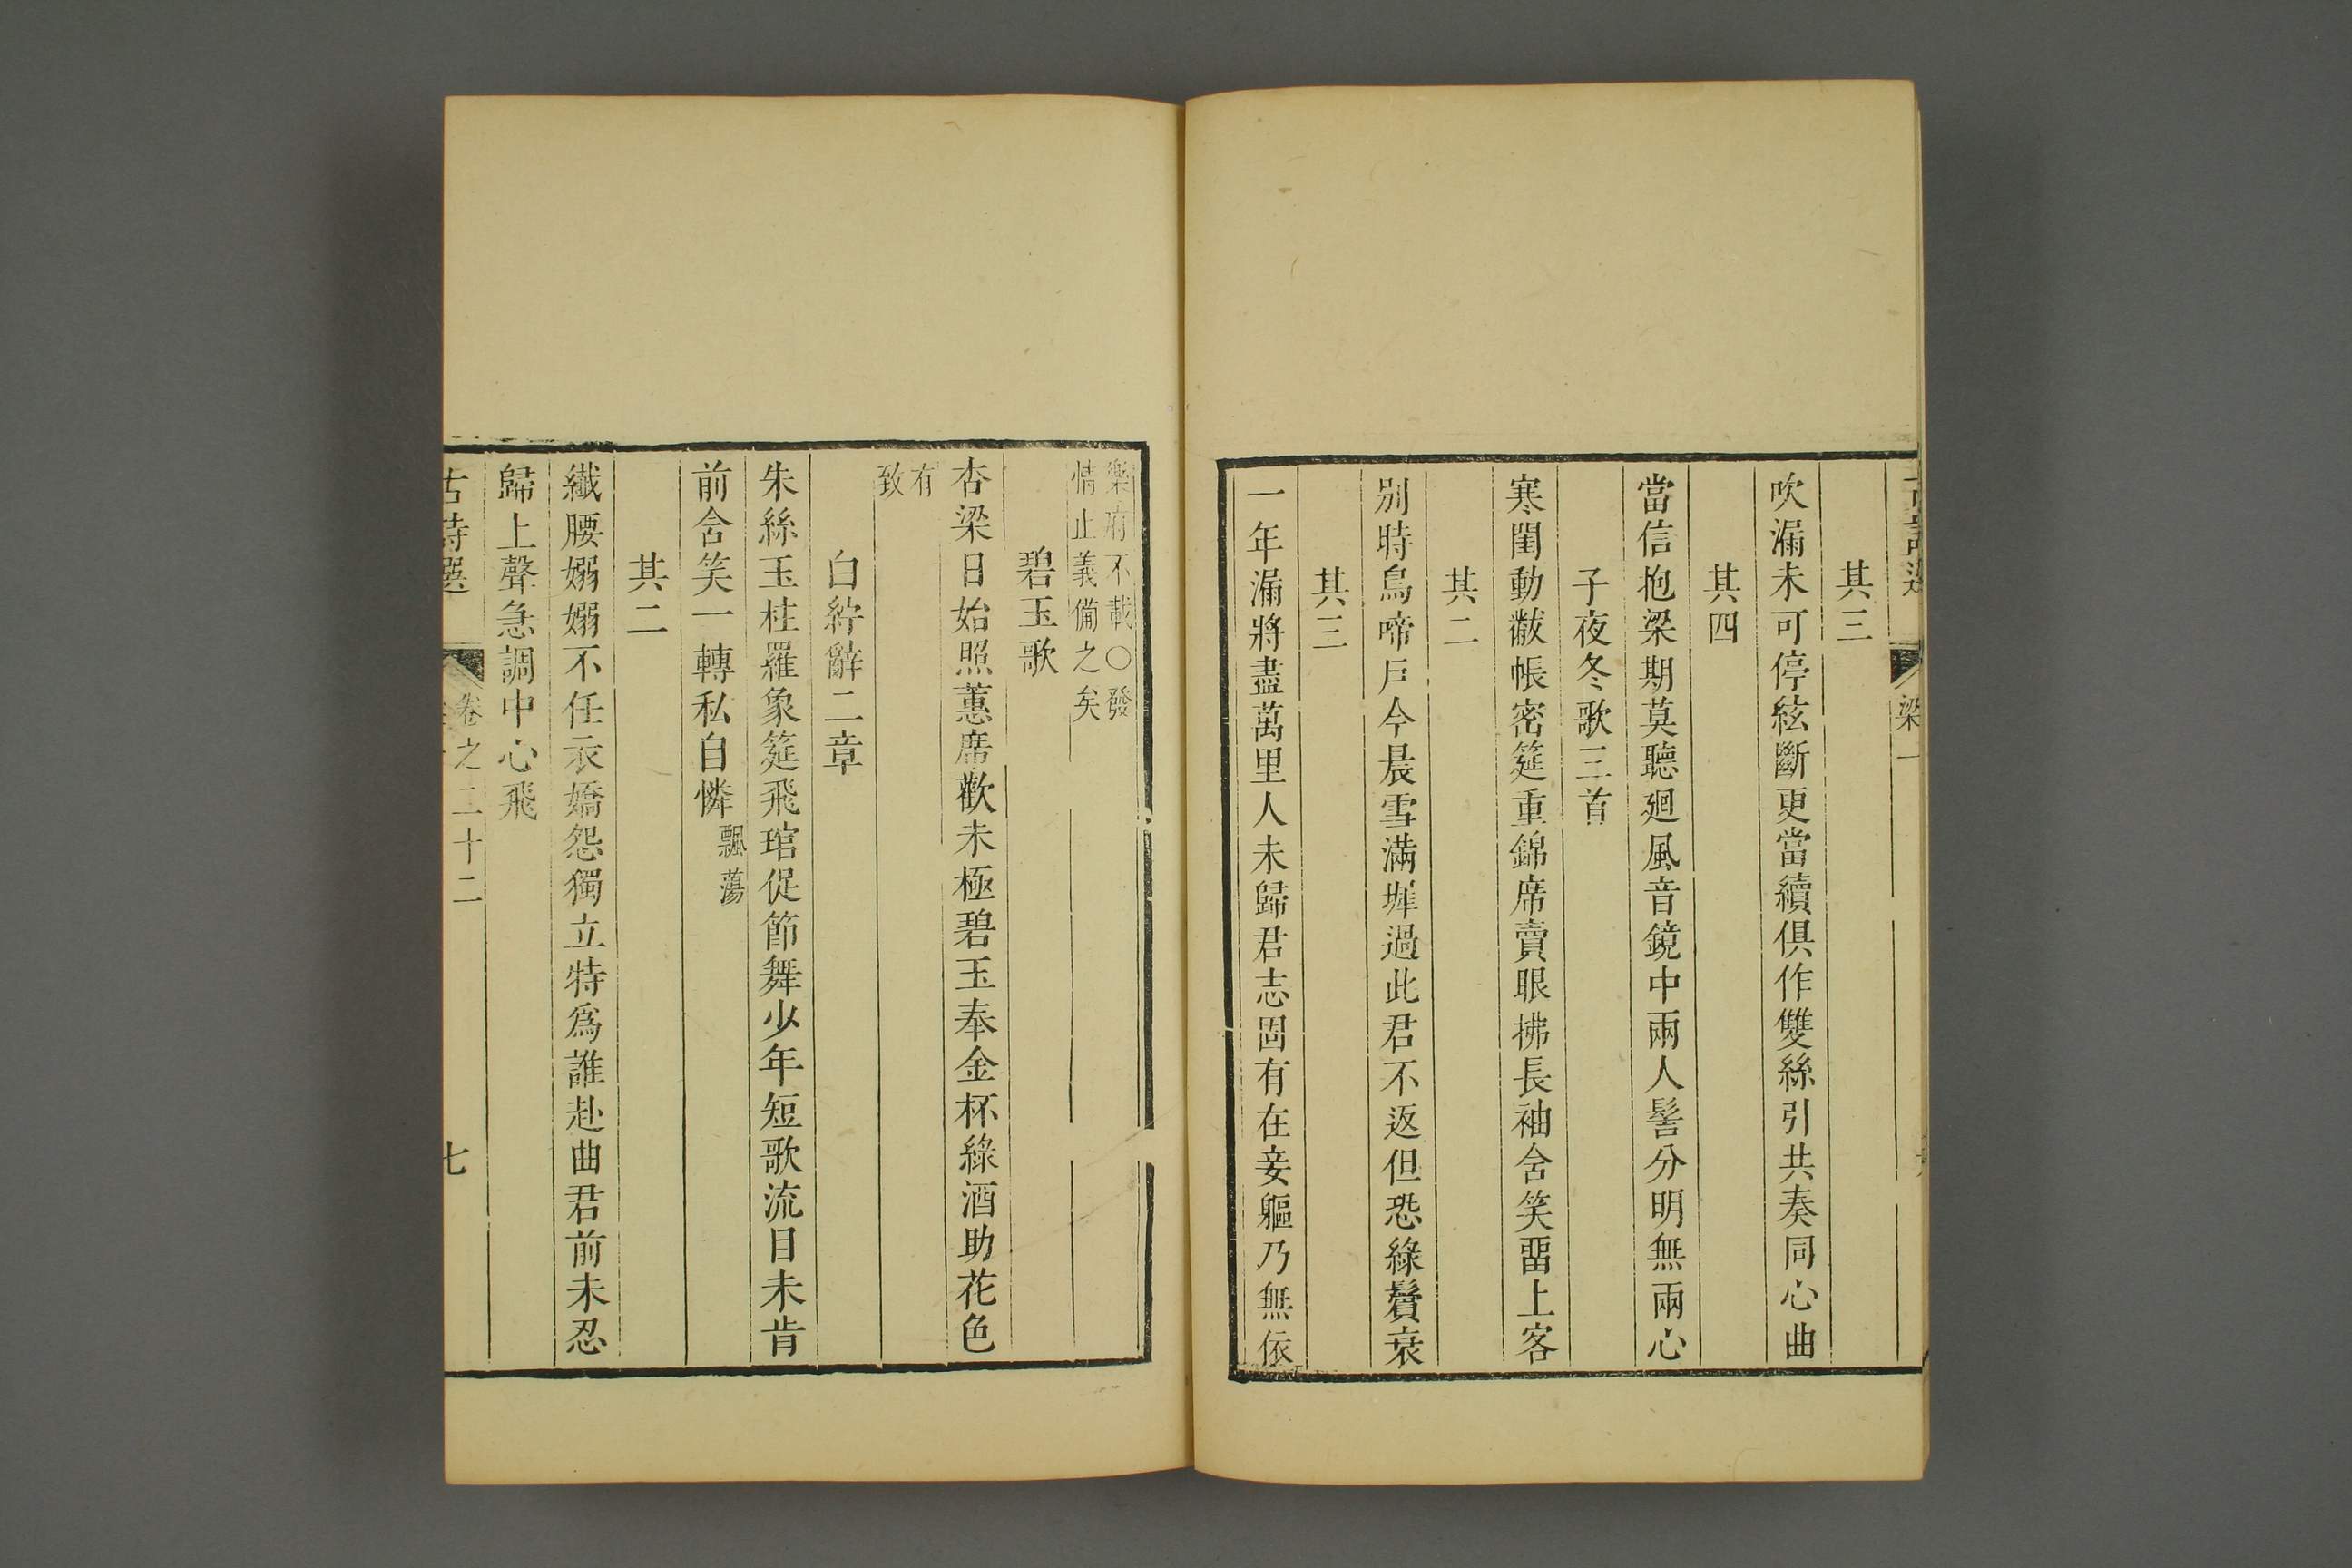 古詩選
梁一
其三
吹漏未可停絃斷更當續俱作雙絲引共奏同心曲
其四
當信抱梁期莫聽廻風音鏡中兩人髻分明無兩心
子夜冬歌三首
寒閨動黻帳密筵重錦席賣眼拂長袖含笑留上客
其二
別時鳥啼戶今晨雪滿墀過此君不返但恐綠鬢衰
其三
一年漏將盡萬里人未歸君志固有在妾軀乃無依
樂府不載○發
情止義備之矣
碧玉歌
杏梁日始照蕙席歡未極碧玉奉金杯綠酒助花色
有
致
白紵辭二章
朱絲玉柱羅象筵飛琯促節舞少年短歌流目未肯
前含笑一轉私自憐飄蕩
其二
纖腰嫋嫋不任衣嬌怨獨立特爲誰赴曲君前未忍
歸上聲急調中心飛
古詩選
卷之二十二
七